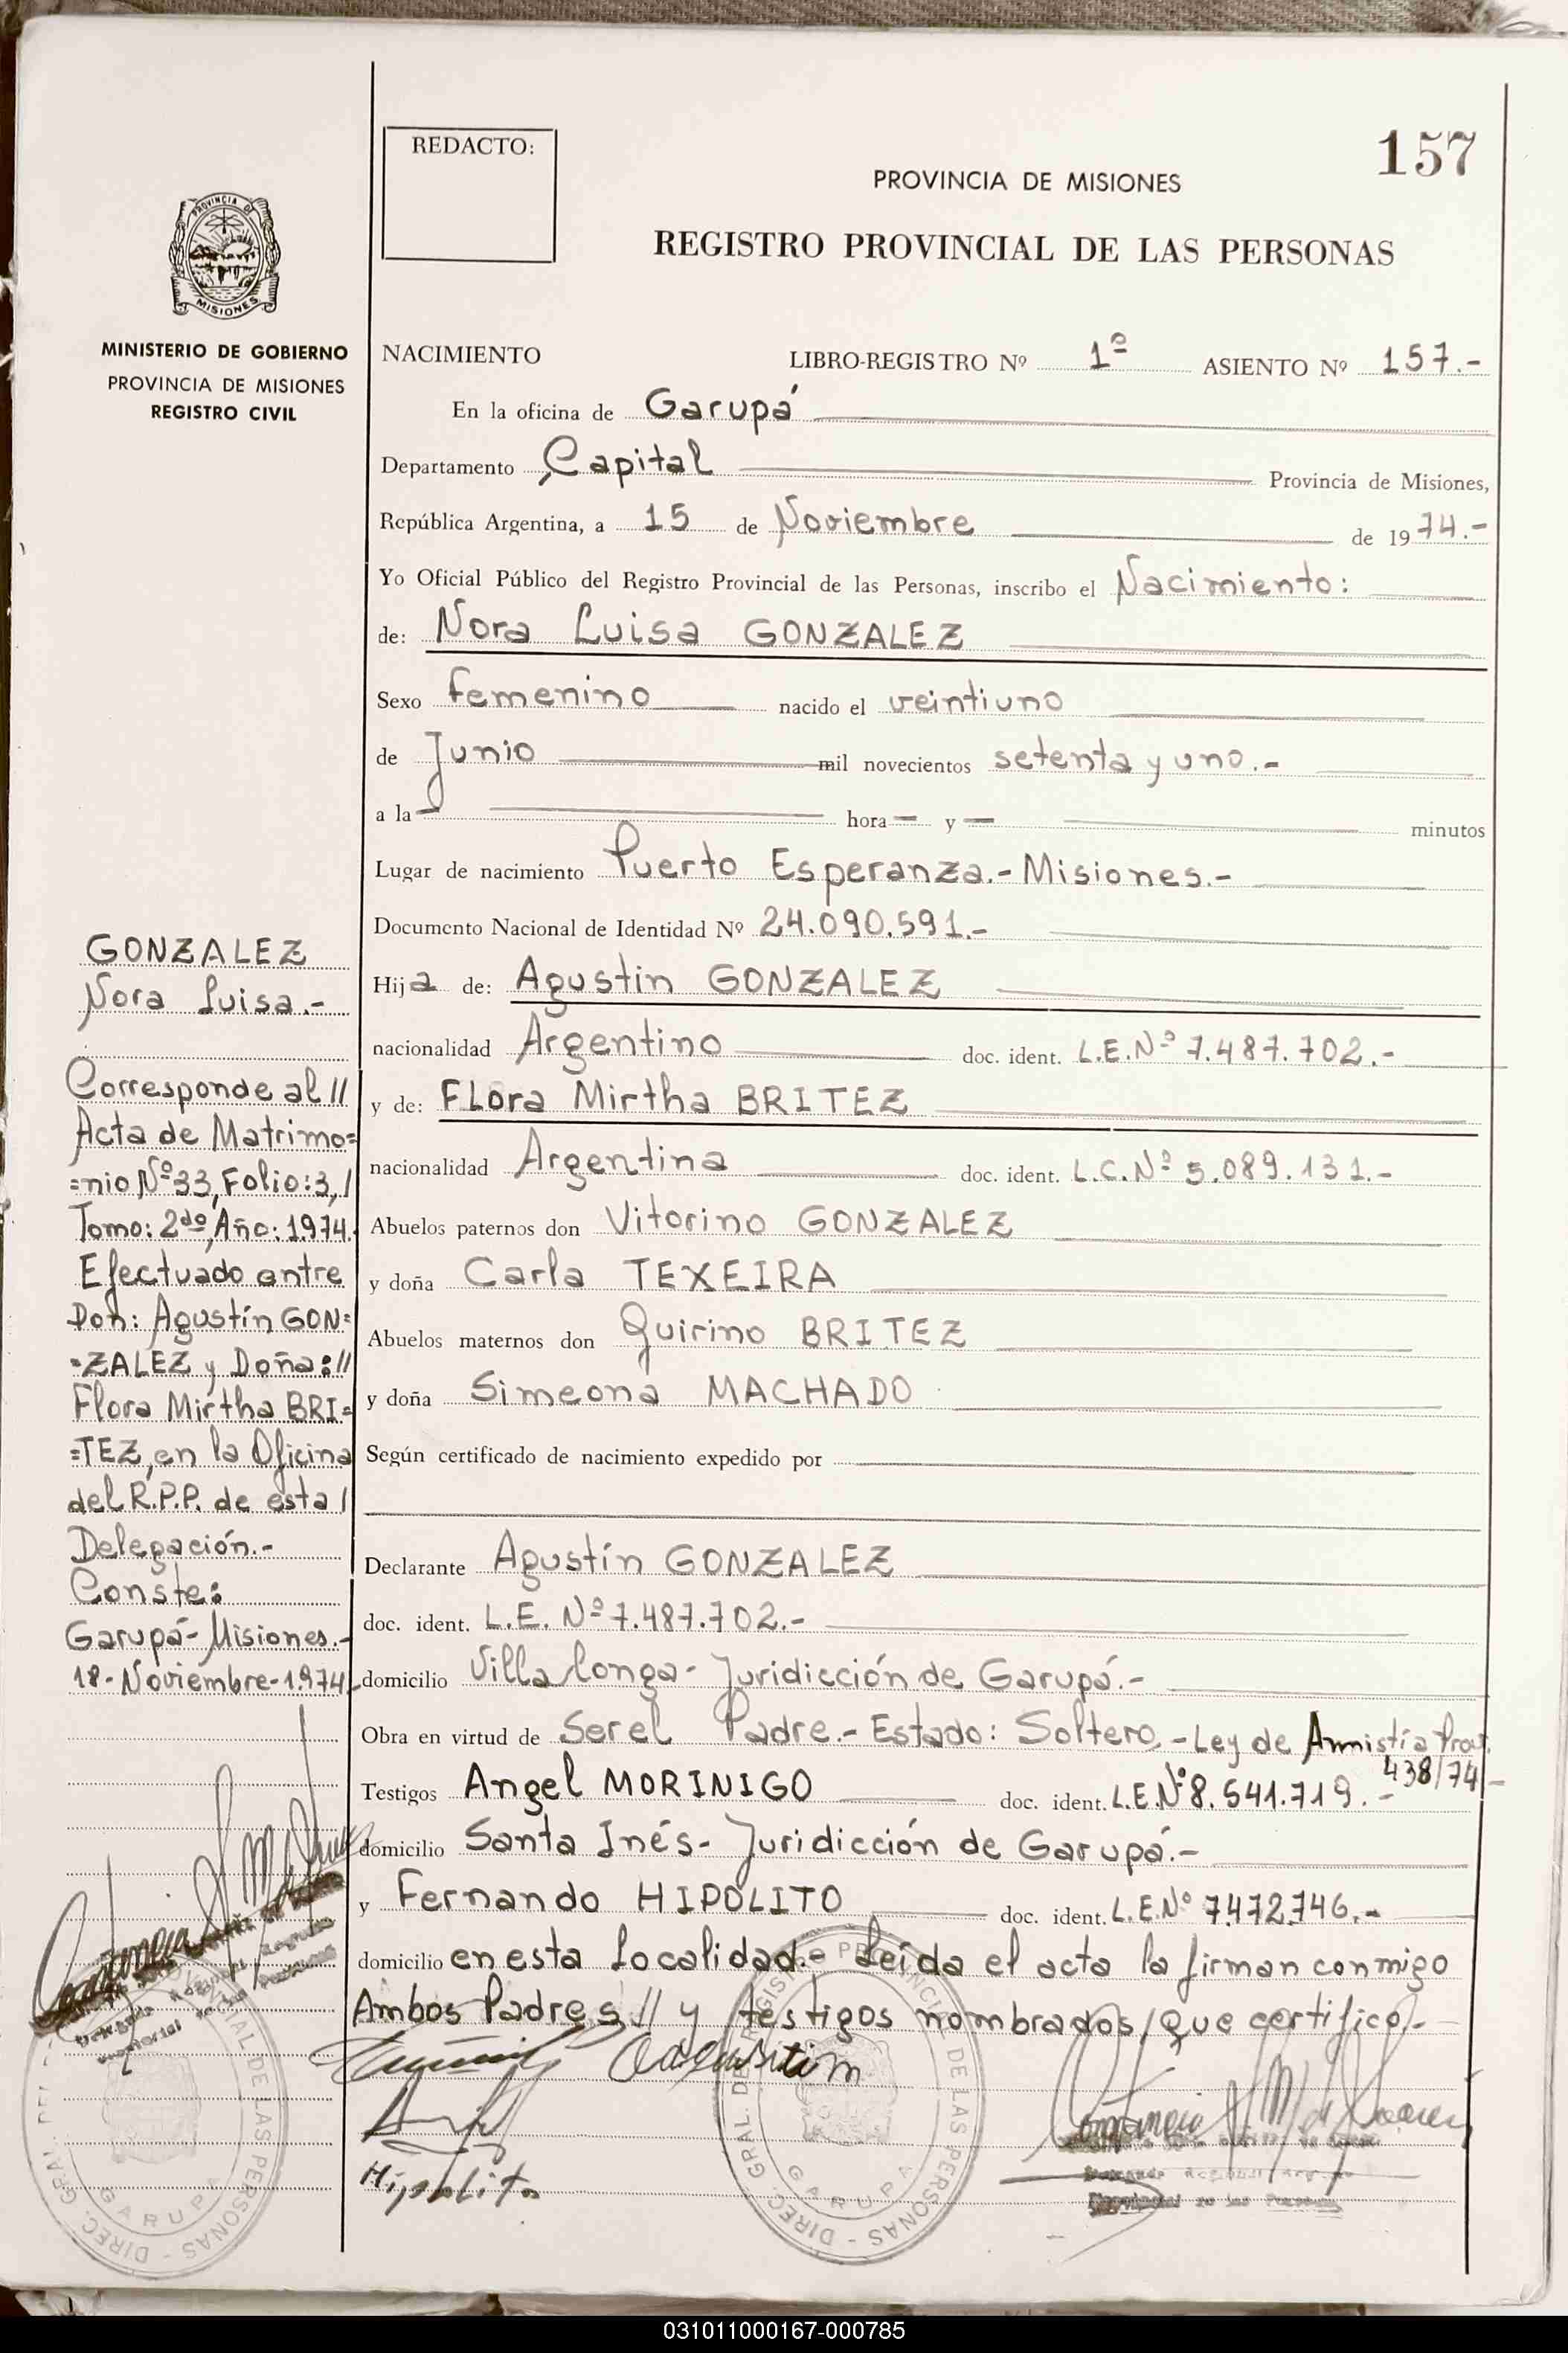 REDACTO:
157
PROVINCIA DE MISIONES
REGISTRO PROVINCIAL DE LAS PERSONAS
PROVINCIA DE
MISIONES
MINISTERIO DE GOBIERNO
PROVINCIA DE MISIONES
REGISTRO CIVIL
NACIMIENTO LIBRO-REGISTRO Nº 1º ASIENTO Nº 157.-
En la oficina de Garupá
Departamento Capital Provincia de Misiones,
República Argentina, a 15 de Noviembre de 1974.-
Yo Oficial Público del Registro Provincial de las Personas, inscribo el Nacimiento:
de: Nora Luisa GONZALEZ
Sexo femenino nacido el veintiuno
de Junio mil novecientos setenta y uno.-
a la — hora — y — minutos
Lugar de nacimiento Puerto Esperanza.- Misiones.-
Documento Nacional de Identidad Nº 24.090.591.-
Hija de: Agustin GONZALEZ
nacionalidad Argentino doc. ident. L.E.Nº 7.487.702.-
y de: FLora Mirtha BRITEZ
nacionalidad Argentina doc. ident. L.C.Nº 5.089.131.-
Abuelos paternos don Vitorino GONZALEZ
y doña Carla TEXEIRA
Abuelos maternos don Quirino BRITEZ
y doña Simeona MACHADO
Según certificado de nacimiento expedido por
Declarante Agustín GONZALEZ
doc. ident. L.E. Nº 7.487.702.-
domicilio Villa longa- Juridicción de Garupá.-
Obra en virtud de Ser el Padre.- Estado: Soltero.- Ley de Amnistía Prov.
438/74/-
Testigos Angel MORINIGO doc. ident. L.E.Nº 8.541.719.-
domicilio Santa Inés- Juridicción de Garupá.-
y Fernando HIPOLITO doc. ident. L.E.Nº 7.472.746.-
domicilio en esta localidad.- Leída el acta la firman conmigo
Ambos Padres // y testigos nombrados, que certifico.-
Hipolito
GONZALEZ
Nora Luisa.-
Corresponde al //
Acta de Matrimo=
=nio Nº 33, Folio: 3, /
Tomo: 2do, Año: 1974.
Efectuado entre
Don: Agustín GON=
=ZALEZ y Doña: //
Flora Mirtha BRI=
=TEZ, en la Oficina
del R.P.P. de esta /
Delegación.-
Conste:
Garupá- Misiones.-
18- Noviembre- 1974
DIREC. GRAL. DEL REGISTRO PROVINCIAL DE LAS PERSONAS -
GARUPA
031011000167-000785